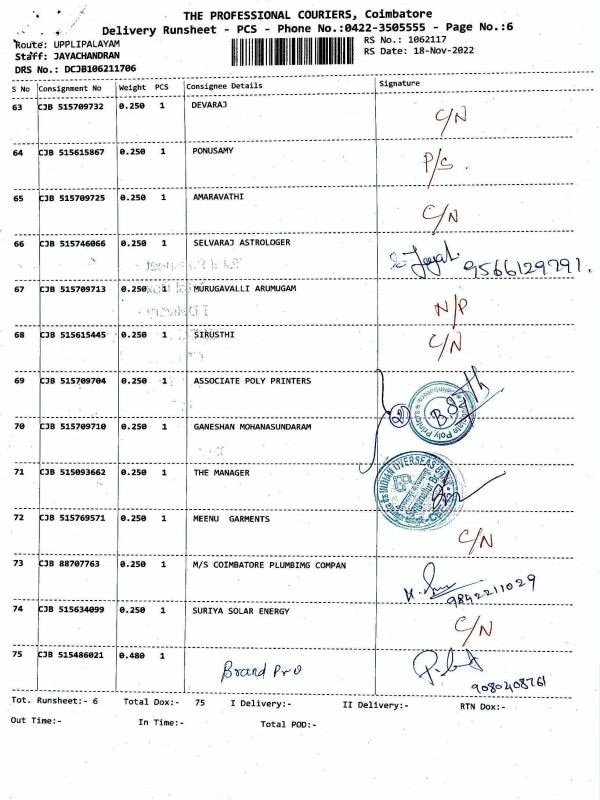 THE PROFESSIONAL COURIERS, Coimbatore
Delivery Runsheet - PCS - Phone No.:0422-3505555 - Page No.:6
Route: UPPLIPALAYAM RS No.: 1062117
Staff: JAYACHANDRAN RS Date: 18-Nov-2022
DRS No.: DCJB106211706
S No Consignment No Weight PCS Consignee Details Signature
63 CJB 515709732 0.250 1 DEVARAJ C/N
64 CJB 515615867 0.250 1 PONUSAMY P/S.
65 CJB 515709725 0.250 1 AMARAVATHI C/N
66 CJB 515746066 0.250 1 SELVARAJ ASTROLOGER 9566129791.
67 CJB 515709713 0.250 1 MURUGAVALLI ARUMUGAM N/P
68 CJB 515615445 0.250 1 SIRUSTHI C/N
69 CJB 515709704 0.250 1 ASSOCIATE POLY PRINTERS
70 CJB 515709710 0.250 1 GANESHAN MOHANASUNDARAM 2
71 CJB 515093662 0.250 1 THE MANAGER INDIAN OVERSEAS BANK
72 CJB 515769571 0.250 1 MEENU GARMENTS C/N
73 CJB 88707763 0.250 1 M/S COIMBATORE PLUMBIMG COMPAN 9842211029
74 CJB 515634099 0.250 1 SURIYA SOLAR ENERGY C/N
75 CJB 515486021 0.480 1 9080408761
Tot. Runsheet:- 6 Total Dox:- 75 I Delivery:- II Delivery:- RTN Dox:-
Out Time:- In Time:- Total POD:-